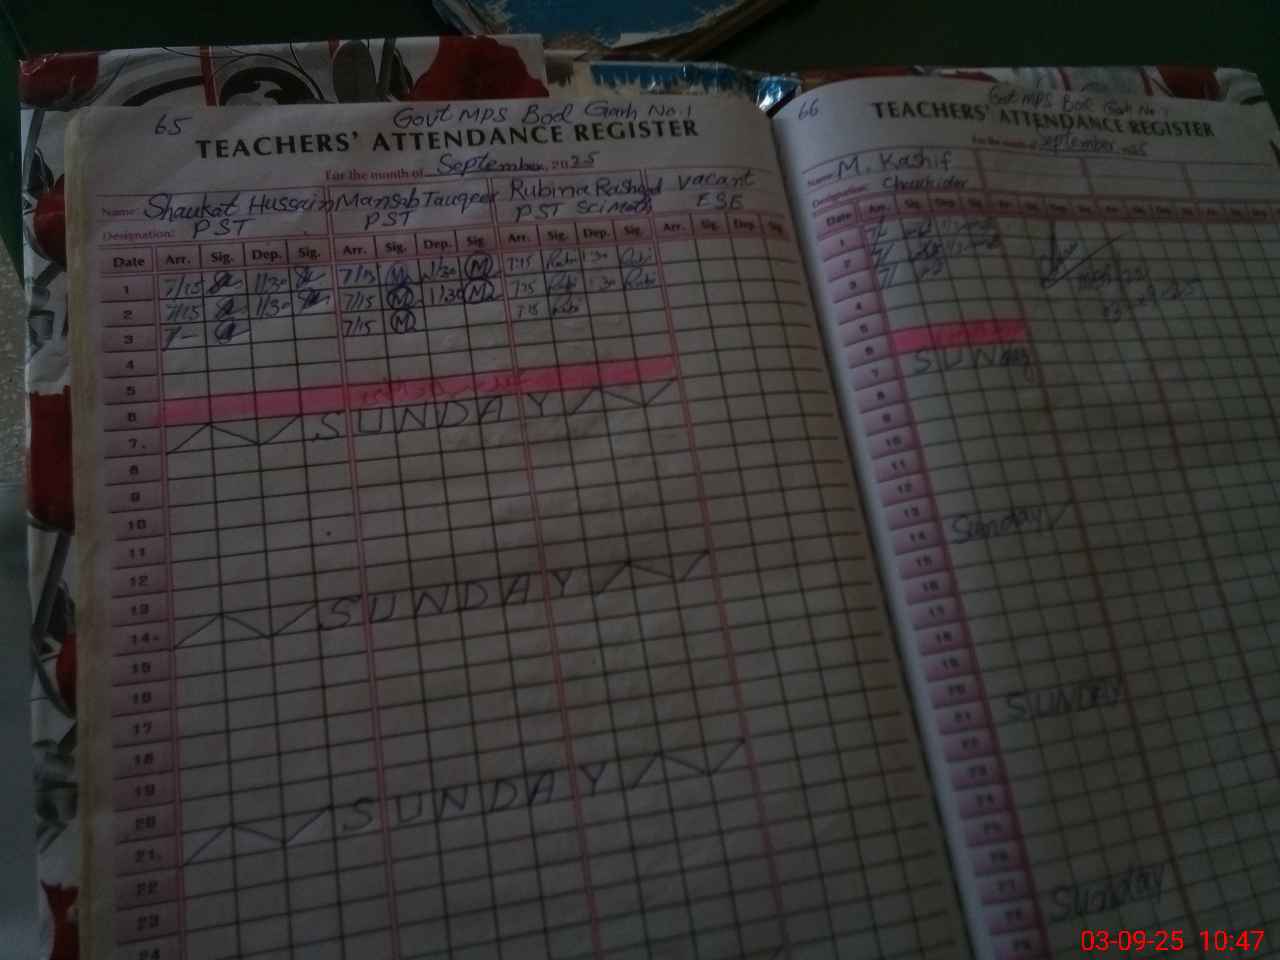 65
Govt MPS Bod Garh No.1
TEACHERS' ATTENDANCE REGISTER
For the month of September 2025
Name: Shaukat Hussain Mansab Tauqeer Rubina Rasheed Vacant
Designation: PST PST PST Sci Math ESE
Date Arr. Sig. Dep. Sig. Arr. Sig. Dep. Sig. Arr. Sig. Dep. Sig. Arr. Sig. Dep. Sig.
1 7/15 1/30 7/15 M 1/30 M 7:15 Rubi 1:30 Rubi
2 7/15 1/30 7/15 M 1/30 M 7:15 Rubi 1:30 Rubi
3 7/15 M 7:15 Rubi
4
5
6
7. SUNDAY
8
9
10
11
12
13
14. SUNDAY
15
16
17
18
19
20
21. SUNDAY
22
23
24
66
Govt MPS Bod Garh No. 1
TEACHERS' ATTENDANCE REGISTER
For the month of September 2025
Name: M. Kashif
Designation: Chowkidar
Date Arr. Sig. Dep. Sig.
1
2
3
4
5
6
7 SUNday
8
9
10
11
12
13
14 Sunday
15
16
17
18
19
20
21 SUNDAY
22
23
24
25
26
27
28 Sunday
29
03-09-25 10:47